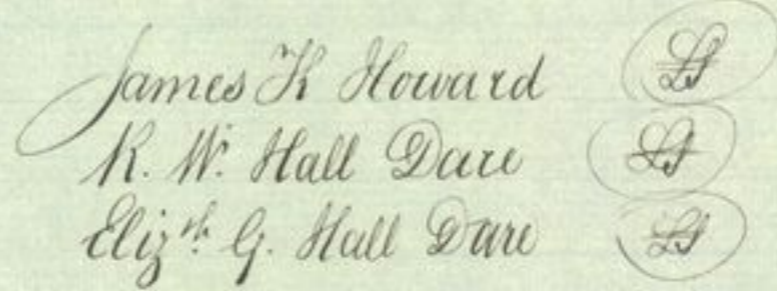 James K Howard LS
R. W. Hall Dare LS
Eliz.th G. Hall Dare LS